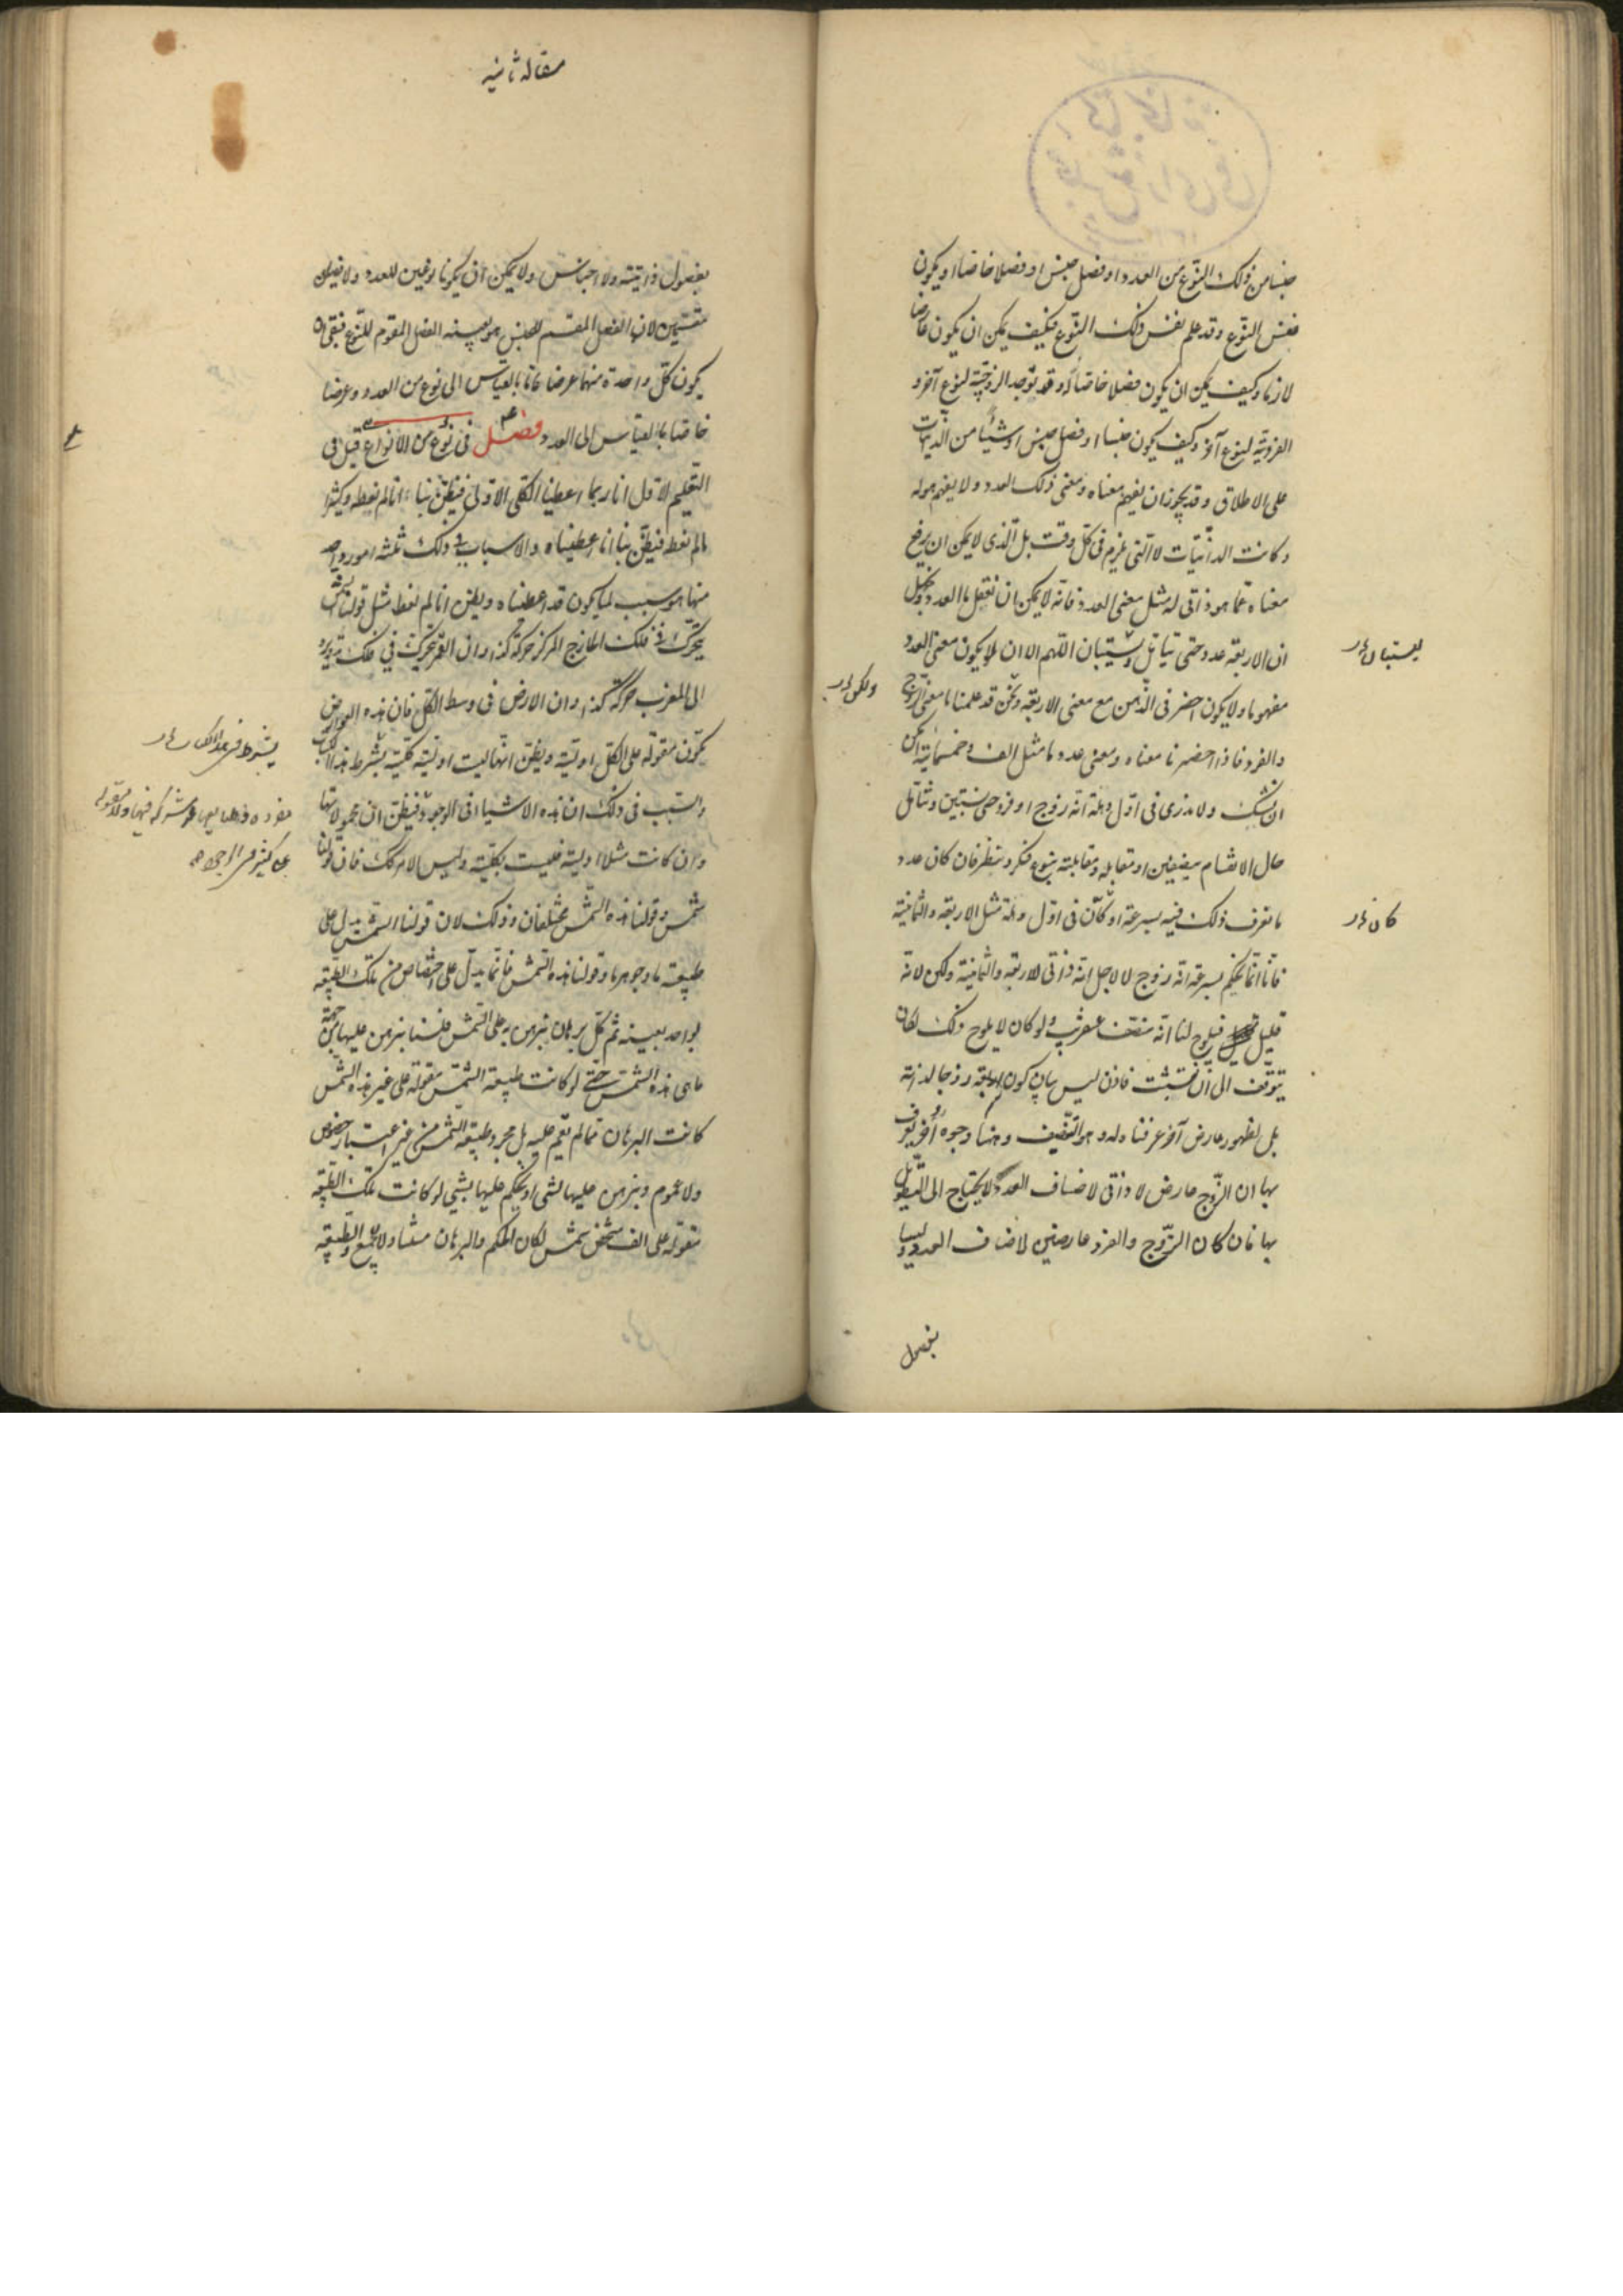 جنسا من ذلك النوع من العدد او فصل جنس او فصلا خاصا او يكون
نفس النوع وقد علم نفس ذلك النوع فكيف يمكن ان يكون عارضا
لازما وكيف يمكن ان يكون فصلا خاصا له وقد توجد الزوجية لنوع آخر و
الفردية لنوع آخر وكيف يكون جنسا او فصل جنس او شيئا من الذاتيات
على الاطلاق وقد يجوز ان يفهم معناه ومعنى ذلك العدد ولا يفهم هو له
وكانت الذاتيات لا التى تلزم فى كل وقت بل الذى لا يمكن ان يرفع
معناه عما هو ذاتى له مثل معنى العدد فانه لا يمكن ان نعقل ما العدد و
ان الاربعة عدد حتى يتأمل ويستبان اللهم الا ان لا يكون معنى العدد
يستبان
مفهوما ولا يكون احضر فى الذهن مع معنى الاربعة ونحن قد علمنا ما معنى الزوج
ولكن
والفرد فاذا احضرنا معناه ومعنى عدد ما مثل الف وخمسمائة امكن
ان نشك ولا ندرى فى اول وهلة انه زوج او فرد حتى نستبين ونتأمل
حال الانقسام بنصفين او مقابله ومقابلته بنوع فكر ونظر فان كان عدد
ما نعرف ذلك فيه بسرعة او كان فى اول وهلة مثل الاربعة والثمانية
كان
فانا انما نحكم بسرعة انه زوج لا لاجل انه ذاتى للاربعة والثمانية ولكن لانه
قليل فيلوح لنا انه منتصف عن قرب ولو كان لا يلوح ذلك لكان
يتوقف الى ان نتثبت فاذن ليس بيان كون الاربعة زوجا لذاته
بل لظهور عارض آخر عرفناه له وهو التنصيف وهنا وجوه اخر يعرف
بها ان الزوج عارض لا ذاتى لاصناف العدد ولا يحتاج الى التطويل
بها فان كان الزوج والفرد عارضين لاصناف العدد وليسا
بفصول
مقالة ثانيه
بفصول ذاتية ولا اجناس ولا يمكن ان يكونا نوعين للعدد ولا فصلين
مقسمين لان الفصل المقسم للجنس هو بعينه الفصل المقوم للنوع فبقى ان
يكون كل واحدة منهما عرضا عاما بالقياس الى نوع من العدد وعرضا
خاصا بالقياس الى العدد فصل فى نوع من الانواع قيل فى
التعليم الاول انا ربما اعطينا الكلى الاولى فيظن بنا انا لم نعطه وكثيرا
ما لم نعط فيظن بنا انا اعطيناه والاسباب فى ذلك ثلثة امور واحد
منها هو سبب لما يكون قد اعطيناه ويظن انا لم نعط مثل قولنا ان
يتحرك فى فلك الخارج المركز حركة كذا وان القمر يتحرك فى فلك تدويره
الى المغرب حركة كذا وان الارض فى وسط الكل فان هذه العوارض
تكون مقولة على الكل اولية ويظن انها ليست اولية كلية بشرط هذا الكتاب
بشرط فى هذا الكتاب
والسبب فى ذلك ان هذه الاشيا فى الوجود فيظن ان محمولاتها
مفردة
وان كانت مثلا اولية فليست بكلية وليس الامر كك فان قولنا
شمس وقولنا هذه الشمس مختلفان وذلك لان قولنا الشمس يدل على
طبيعة ما وجوهر ما وقولنا هذه الشمس فانما يدل على اختصاص من تلك الطبيعة
لواحد بعينه ثم كل برهان نبرهن به على الشمس فلسنا نبرهن عليها من جهة
ما هى هذه الشمس حتى لو كانت طبيعة الشمس مقولة على غير هذه الشمس
كانت البرهان مما لم نقم عليه بل مجرد طبيعة الشمس من غير اعتبار خصوص
ولا عموم ونبرهن عليها لشى او نحكم عليها بشى لو كانت تلك الطبيعة
مقولة على الف شخص شمس لكان الحكم والبرهان متناولا لجميع والطبيعة